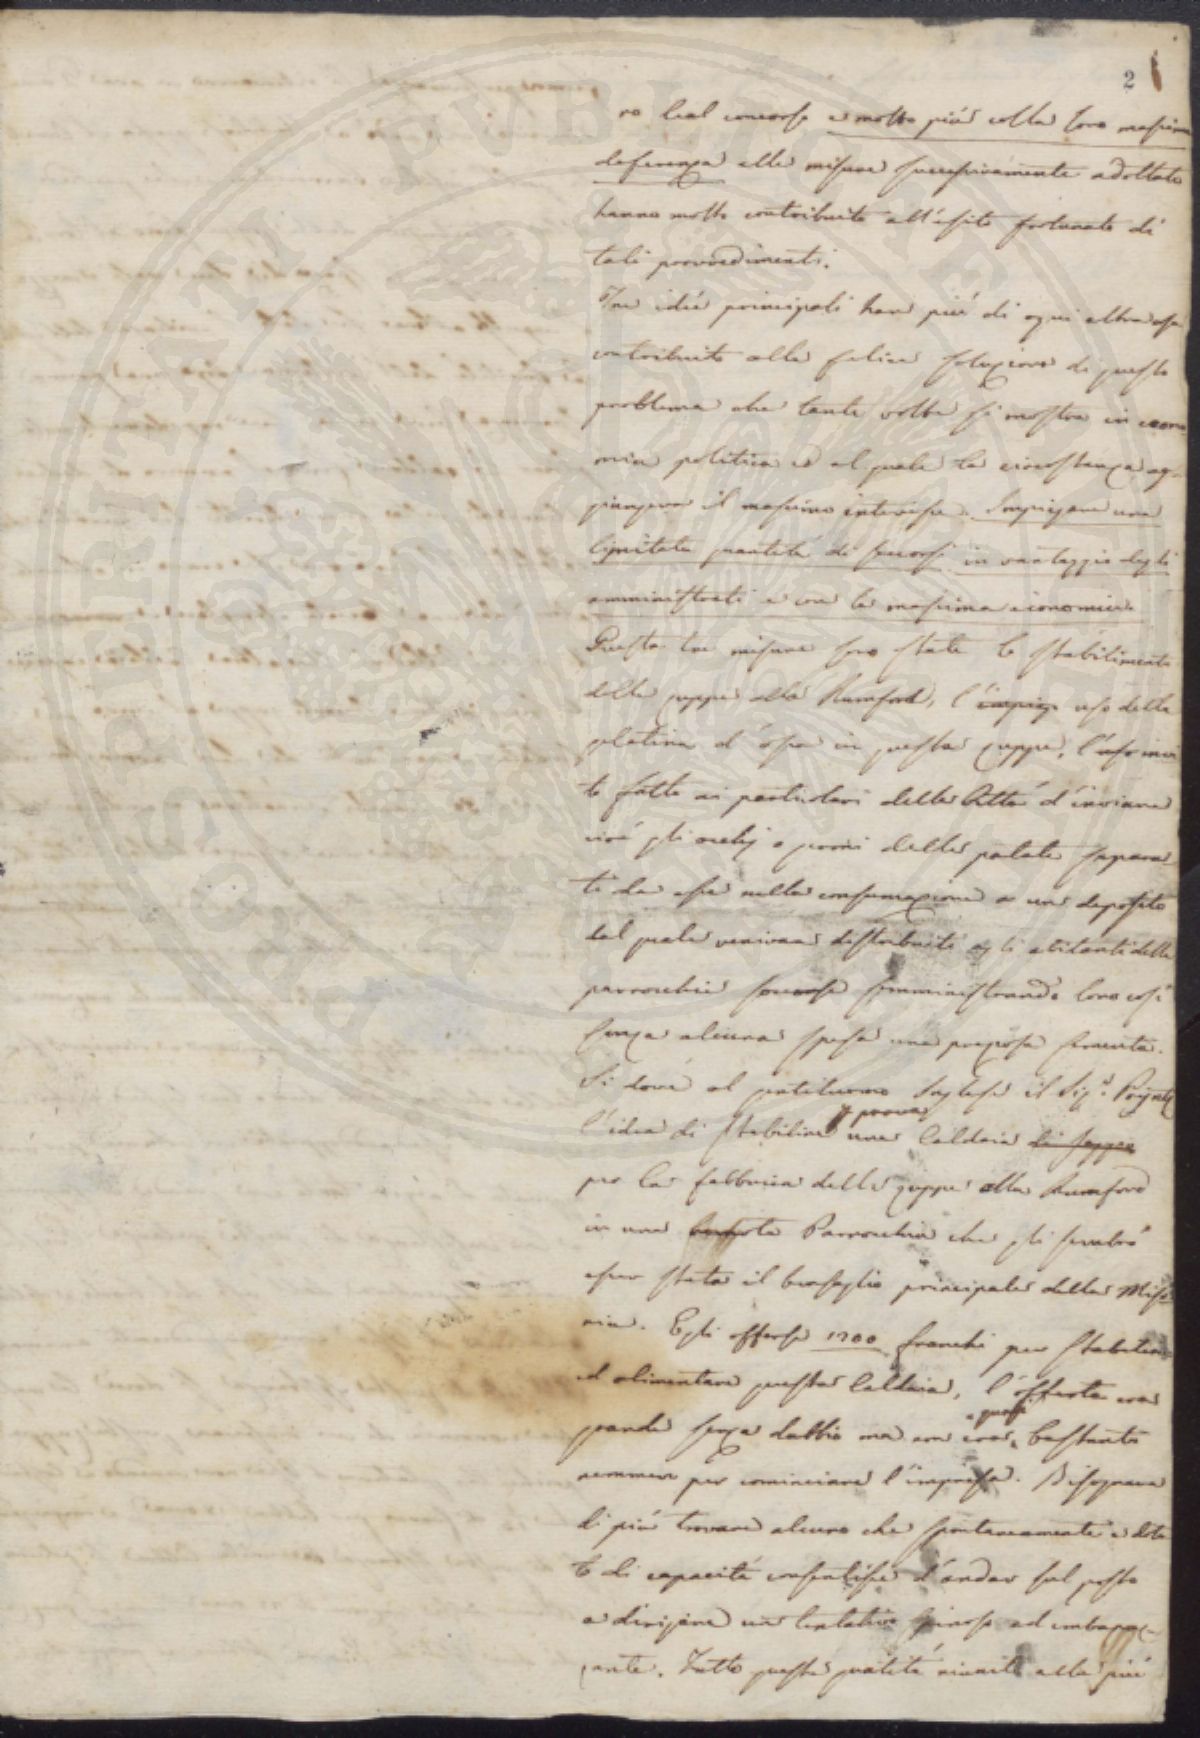 2
ro leal concorso e molto più colla loro massima
deferenza alle misure successivamente adottate
hanno molto contribuito all'esito fortunato di
tali provvedimenti.
Tre idee principali han più di ogni altra cosa
contribuito alla felice soluzione di questo
problema che tante volte si mostra in econo
mia politica e al quale la circostanza ag-
giungeva il massimo interesse. Impiegare una
limitata quantità di soccorsi in vantaggio degli
amministrati e con la massima economia.
Queste tre misure sono state lo stabilimento
delle zuppe alla Rumford, l'impiego uso della
gelatina d'ossa in queste zuppe, l'
to fatto ai particolari della Città d'inviare
cioè gli occhj o germi delle patate separa-
ti da esse nella consumazione a un deposito
dal quale venivan distribuiti agli abitanti delle
parrocchie soccorse somministrando loro così
senza alcuna spesa una preziosa sementa.
Si dové al gentiluomo Inglese il Sig.r
l'idea di stabilire a prova una Caldaia di zuppa
per la fabbrica delle zuppe alla Rumford
in una Parrocchia che gli sembrò
esser stata il bersaglio principale della Mise
ria. Egli offerse 1200 franchi per stabilire
ed alimentare questa Caldaia, l'offerta era
grande senza dubbio ma non era quasi bastante
nemmen per cominciare l'impresa. Bisognava
di più trovare alcuno che spontaneamente e dota
to di capacità consentisse d'andar sul posto
a dirigere un tentativo spinoso ed imbaraz-
zante. Tutte queste qualità riunite alla più